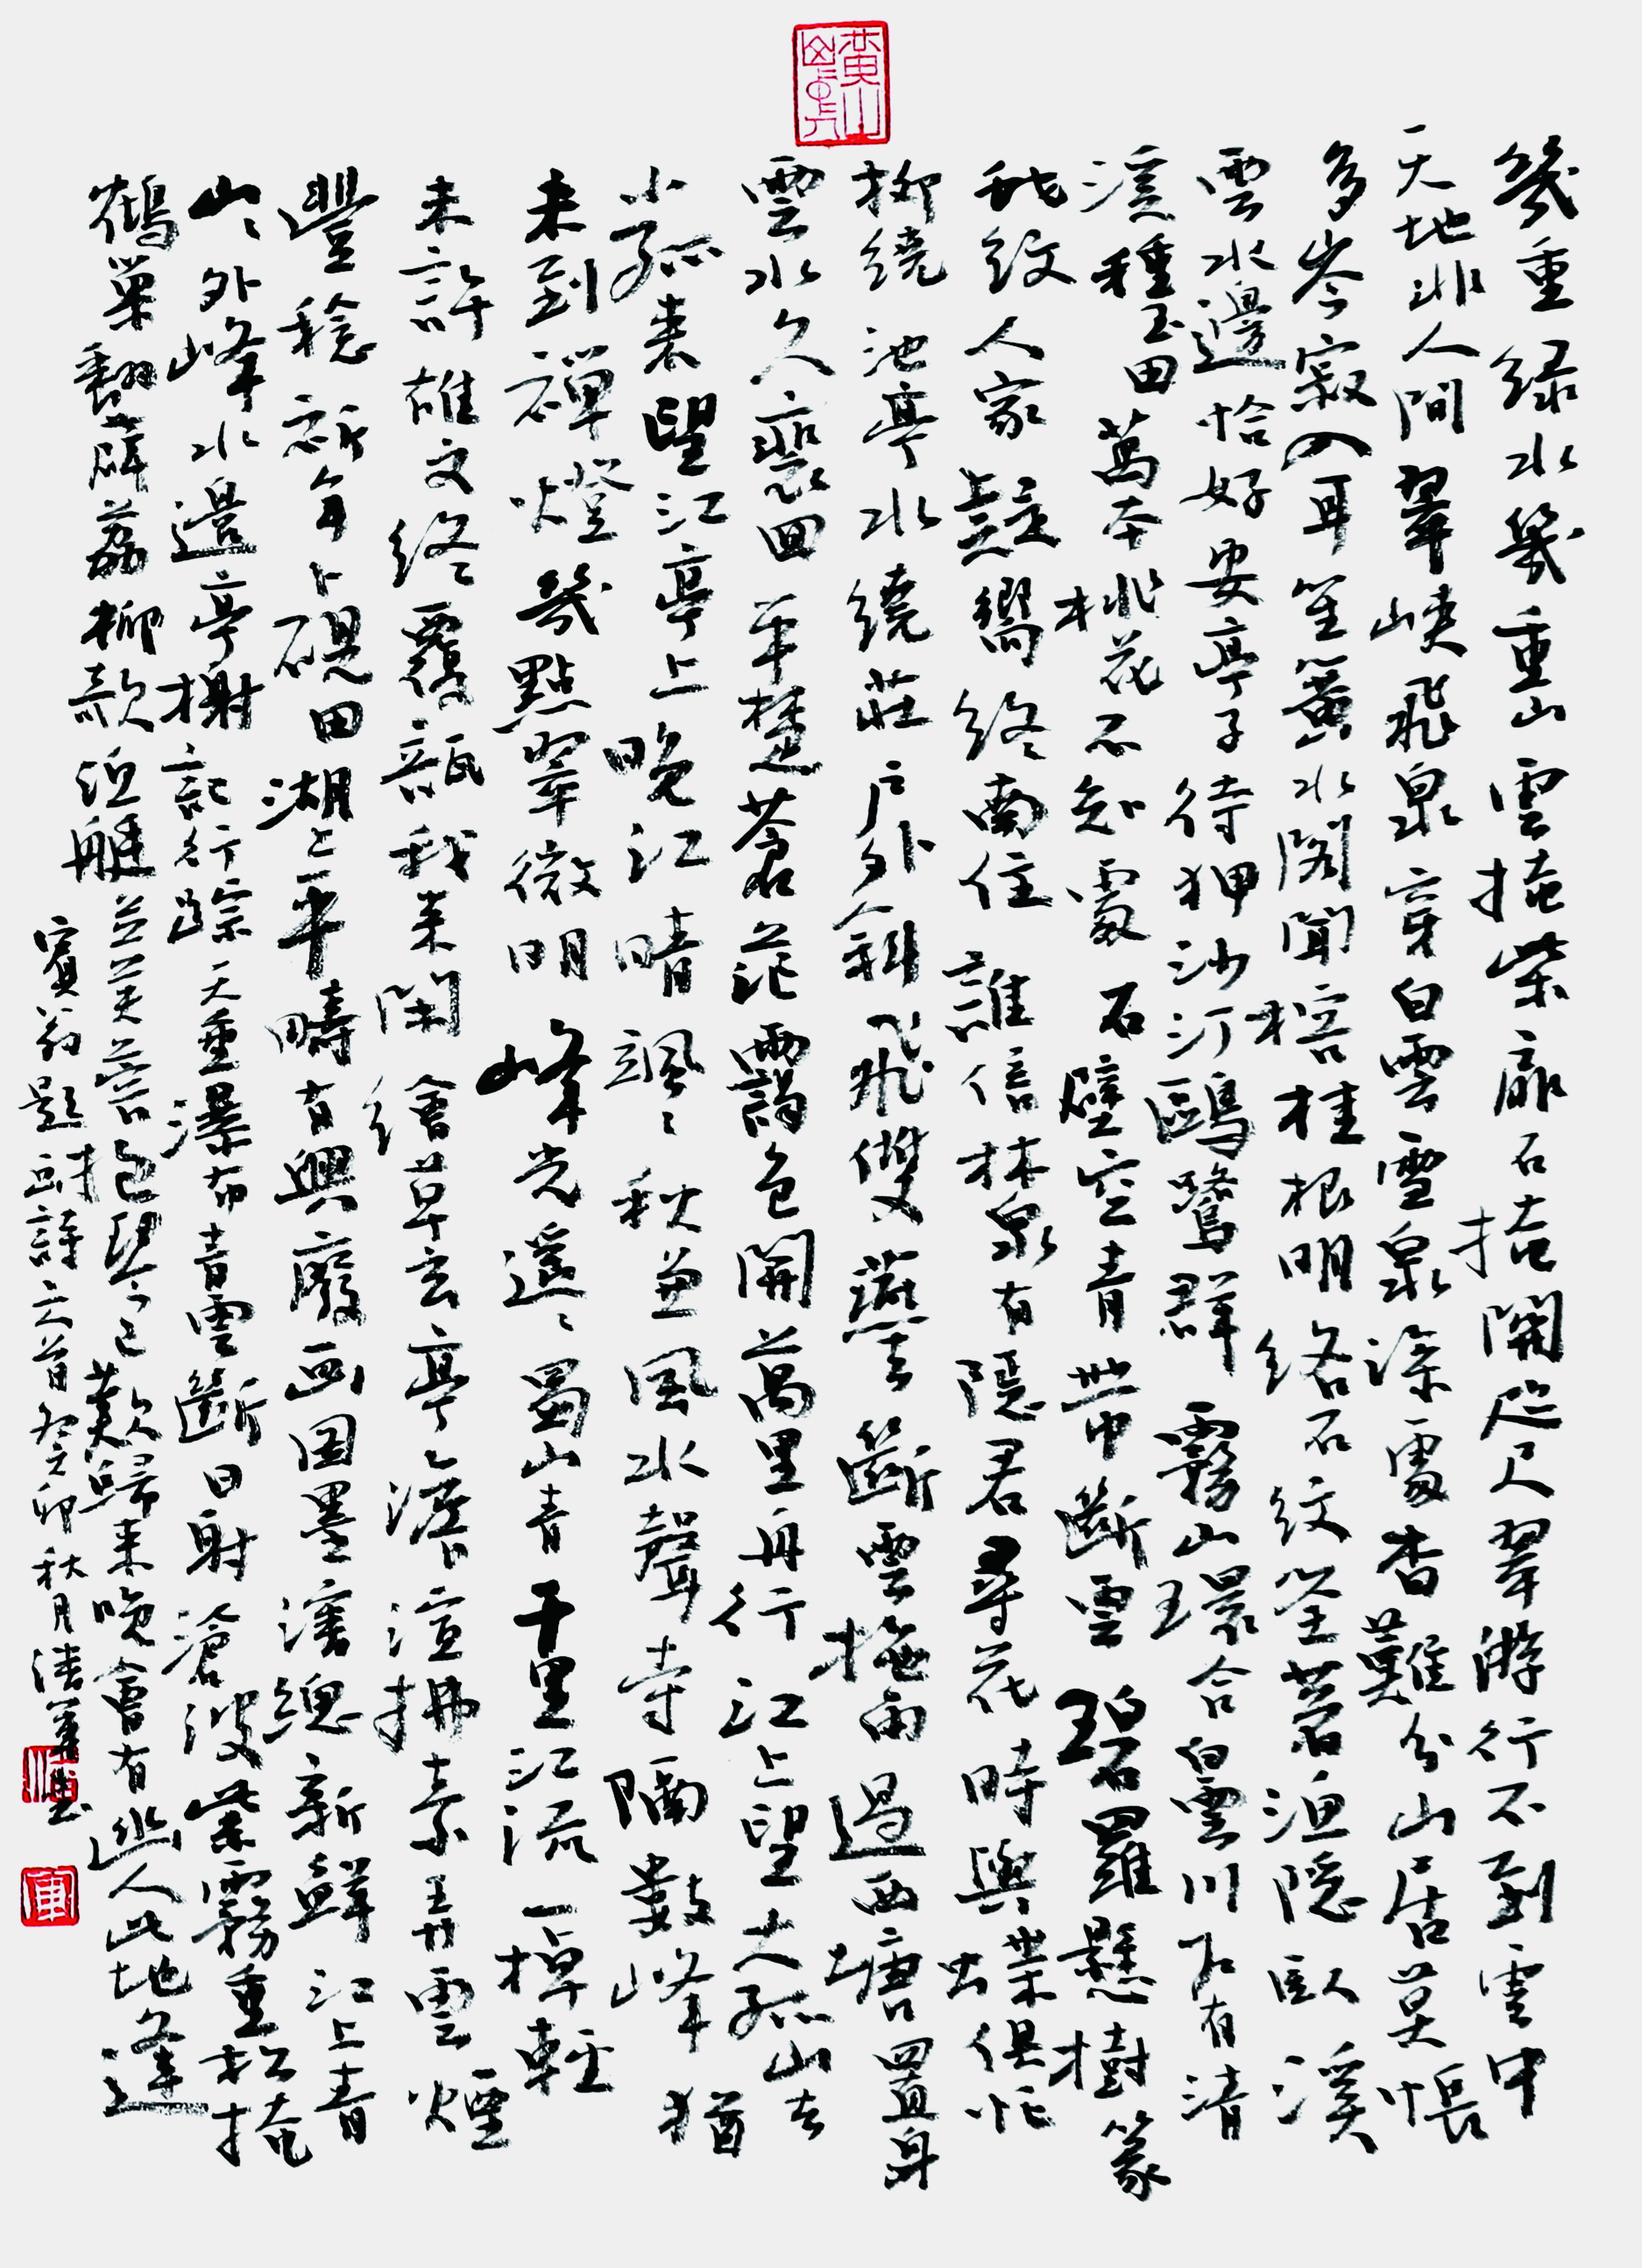 幾重綠水幾重山雲掩柴扉石掩關咫尺翠游行不到雲中
天地非人間翠峽飛泉穿白雲雪泉深處杳難分山居莫悵
多岑寂入耳笙簧水閣聞榕桂根明絡石紋坐著漁隱臥溪
雲水邊恰好安亭子待狎沙汀鷗鷺群霧山環合白雲川下有清
溪種玉田萬本桃花不知處石壁空青帶斷雲碧羅懸樹篆
蛇紋人家疑嚮終南住誰信林泉有隱君尋花時與蝶俱忙
柳繞池亭水繞莊戶外斜飛雙燕去斷雲拖雨過西塘置身
雲水久裴回平楚蒼茫靄色開萬里舟行江上望大孤山去
小孤來望江亭上晚江晴颯颯秋兼風水聲寺隔數峰猶
未到禪燈幾點翠微明峰光遙遙蜀山青千里江流一棹輕
未許雄文終覆瓿我來閑繪草玄亭澹渲拂素弄雲煙
豐稔祈年卜硯田湖上平疇有興廢畫圖墨瀋總新鮮江上青
山山外峰水邊亭榭記行蹤天垂瀑布青雲斷日射滄波紫霧重松掩
鶴巢翻薜荔柳款漁艇立芙蓉抱琴已歎歸來晚會有幽人此地逢
賓翁題畫詩六首癸卯秋月書